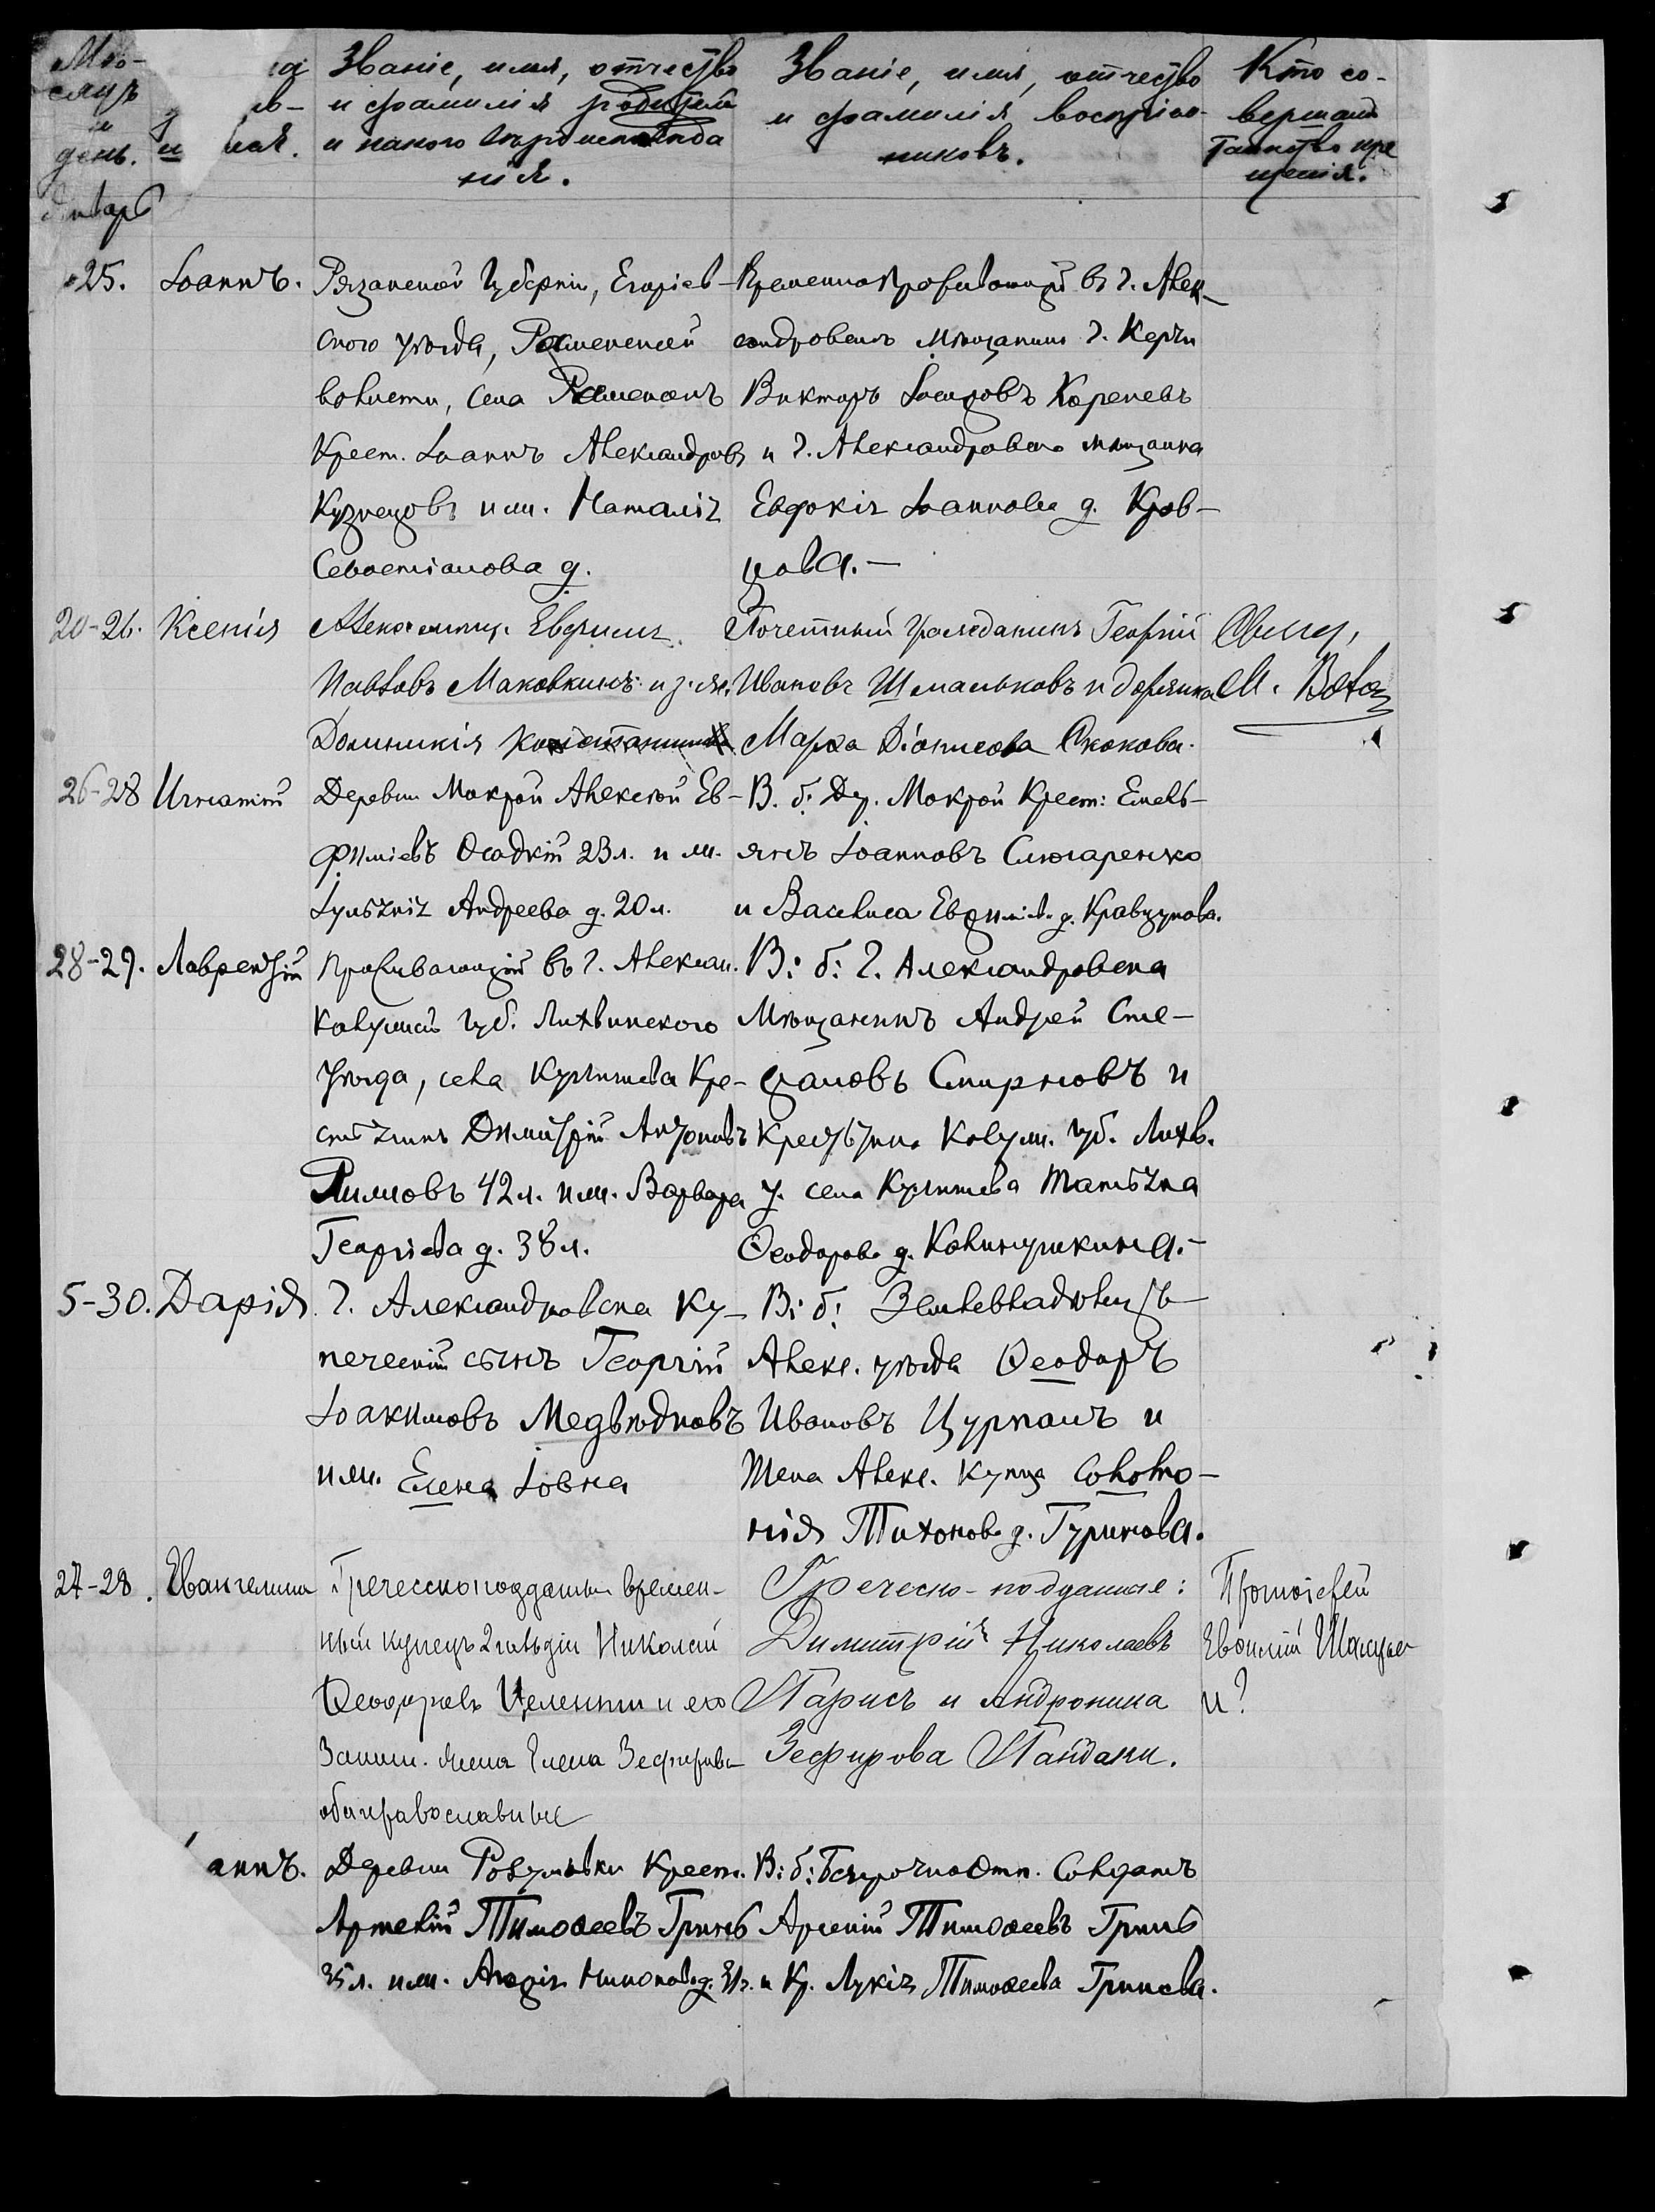 Мѣ-
сяцъ
и
день.
Званіе, имя, отчество
и фамилія родителей
и какого вѣроисповѣда
нія.
Званіе, имя, отчество
и фамилія воспріем-
никовъ.
Кто со-
вершалъ
таинство кре
щенія.
Январь
25. Іоаннъ.
Рязанской Губерніи, Егорьев-
ского уѣзда, Раменской
волости, села Раменокъ
Крест. Іоаннъ Александровъ
Кузнецовъ и ж. Наталія
Севостіанова д.
Временно проживающій в г. Алек-
сандровскѣ мѣщанинъ г. Керчи
Викторъ Іосифовъ Кореневъ
и г. Александровска мѣщанка
Евдокія Іоаннова д. Крав-
цова.—
20-26. Ксенія
Евфимъ
Павловъ Маковкинъ и з. ж.
Домникія
Почетный Гражданинъ Георгій
Ивановъ Шмальковъ и дворянка
Марѳа Діонисова Скокова.
Свящ.
М.
26-28 Игнатій
Деревни Мокрой Алексѣй Ев-
фиміевъ Осадкій 23 л. и ж.
Іуліанія Андреева д. 20 л.
В. б: Дер. Мокрой Крест: Емель-
янъ Іоанновъ Слюсаренко
и Васса Евфиміева д. Кравцунова.
28-29. Лаврентій
Проживающій въ г. Алексан.
Калужск губ. Лихвинского
Уѣзда, села Кре-
стьянинъ Димитрій Антоновъ
Филиновъ 42 л. и ж. Варвара
Георгіева д. 38 л.
В: б: г. Александровска
Мѣщанинъ Андрей Сте-
фановъ Смирновъ и
Крестьянка Калуж. губ. Лихв.
у. села Татьяна
Ѳеодорова д. Калинушкина.—
5-30. Дарія
г. Александровска Ку-
печескій сынъ Георгій
Іоакимовъ Медвѣдковъ
и ж. Елена Іовна
В: б: Землевладѣлецъ
Алекс. уѣзда Ѳеодоръ
Ивановъ Цурканъ и
Жена Алекс. Купца Соломо-
нія Тихонова д. Гуринова.
27-28. Евангелина
Греческоподданный времен-
ный купецъ 2 гильдіи Николай
Ѳеодоровъ Целенти и его
Законн. жена Елена Зефирова
оба православные
Греческо-подданные:
Димитрій Николаевъ
Парисъ и Андроника
Зефирова Пандаки.
Протоіерей
Евѳимій
и?
аннъ.
Деревни Розумовки Крест.
Артемій Тимоѳеевъ Гринь
35 л. и ж. Агафія
В: б: Безсрочно Отп. Солдатъ
Арсеній Тимоѳеевъ Гринь
и Кр. Лукія Тимоѳеева Гринева.